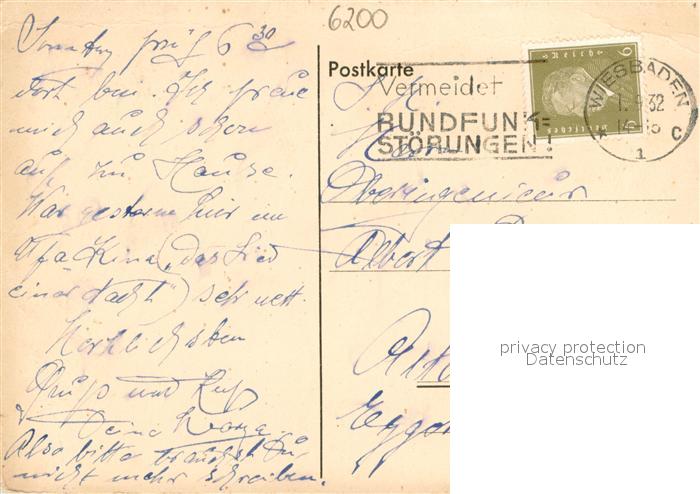 6200
Sonntag früh 6 30
dort bin. Ich freue
mich auch schon
auf zu Hause.
War gestern hier im
Ufa Kino (das Lied
einer Nacht) sehr nett.
Herzlichsten
Gruß und Kuß
Deine
Also bitte brauchst Du
nicht mehr schreiben.
Postkarte
Vermeidet
RUNDFUNK=
STÖRUNGEN!
WIESBADEN
1.9.32
C
1
6
6
Herrn
Oberingenieur
Albert
privacy protection
Datenschutz